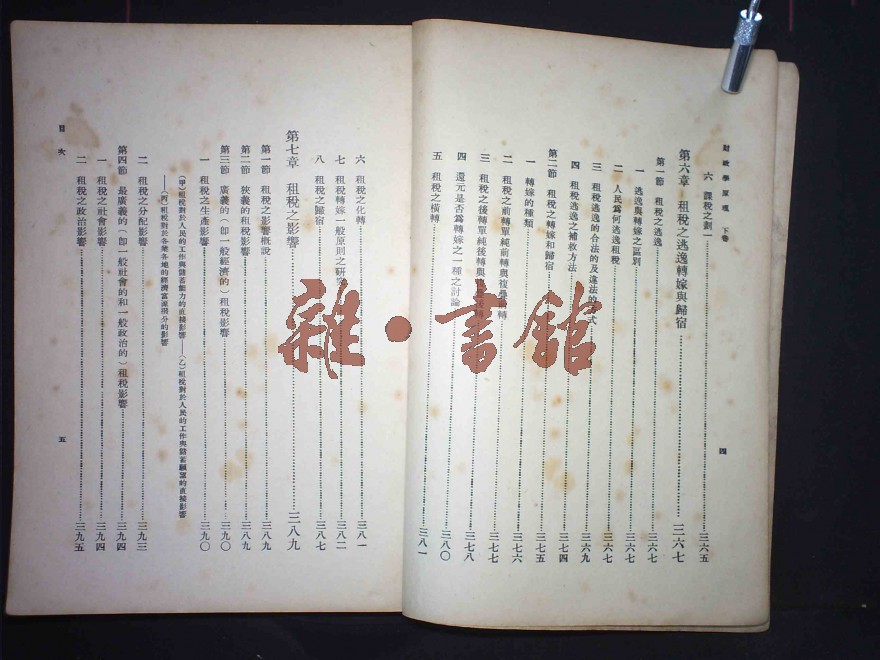 財政學原理 下卷
六 課稅之劃一……三六五
第六章 租稅之逃逸轉嫁與歸宿……三六七
第一節 租稅之逃逸……三六七
一 逃逸與轉嫁之區別……三六七
二 人民為何逃逸租稅……三六七
三 租稅逃逸的合法的及違法的方式……三六九
四 租稅逃逸之補救方法……三七四
第二節 租稅之轉嫁和歸宿……三七四
一 轉嫁的種類……三七五
二 租稅之前轉單純前轉與複疊前轉……三七六
三 租稅之後轉單純後轉與複疊後轉……三七七
四 還元是否為轉嫁之一種之討論……三七八
五 租稅之橫轉……三八一
四
六 租稅之化轉……三八一
七 租稅轉嫁一般原則之研究……三八二
八 租稅之歸宿……三八七
第七章 租稅之影響……三八九
第一節 租稅之影響概說……三八九
第二節 狹義的租稅影響……三八九
第三節 廣義的(即一般經濟的)租稅影響……三九〇
一 租稅之生產影響……三九〇
(甲)租稅對於人民的工作與儲蓄能力的直接影響——(乙)租稅對於人民的工作與儲蓄願望的直接影響
——(丙)租稅對於各業各地的經濟富源損分的影響
二 租稅之分配影響……三九三
第四節 最廣義的(即一般社會的和一般政治的)租稅影響……三九四
一 租稅之社會影響……三九四
二 租稅之政治影響……三九五
目次
五
雜·書館